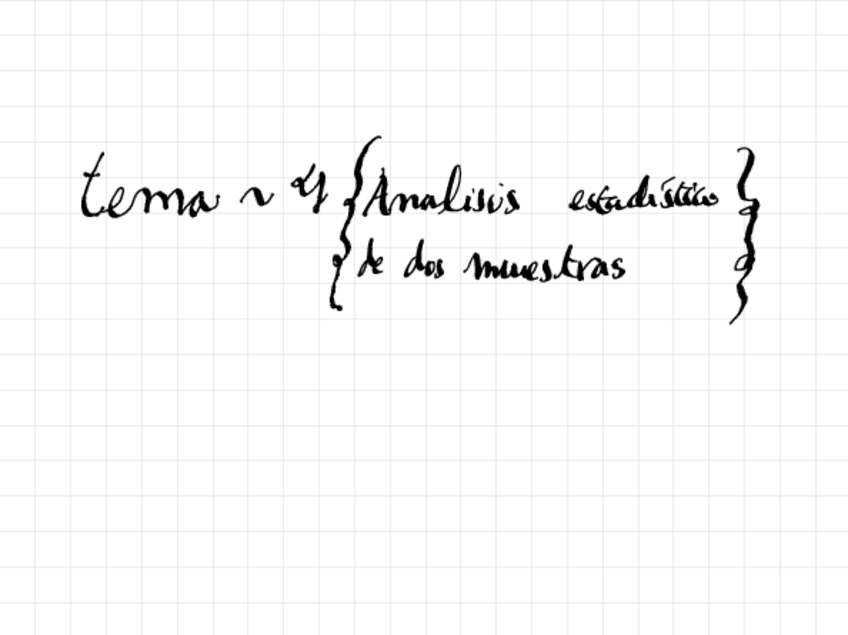 tema ~ 4 { Analisis estadístico
de dos muestras }